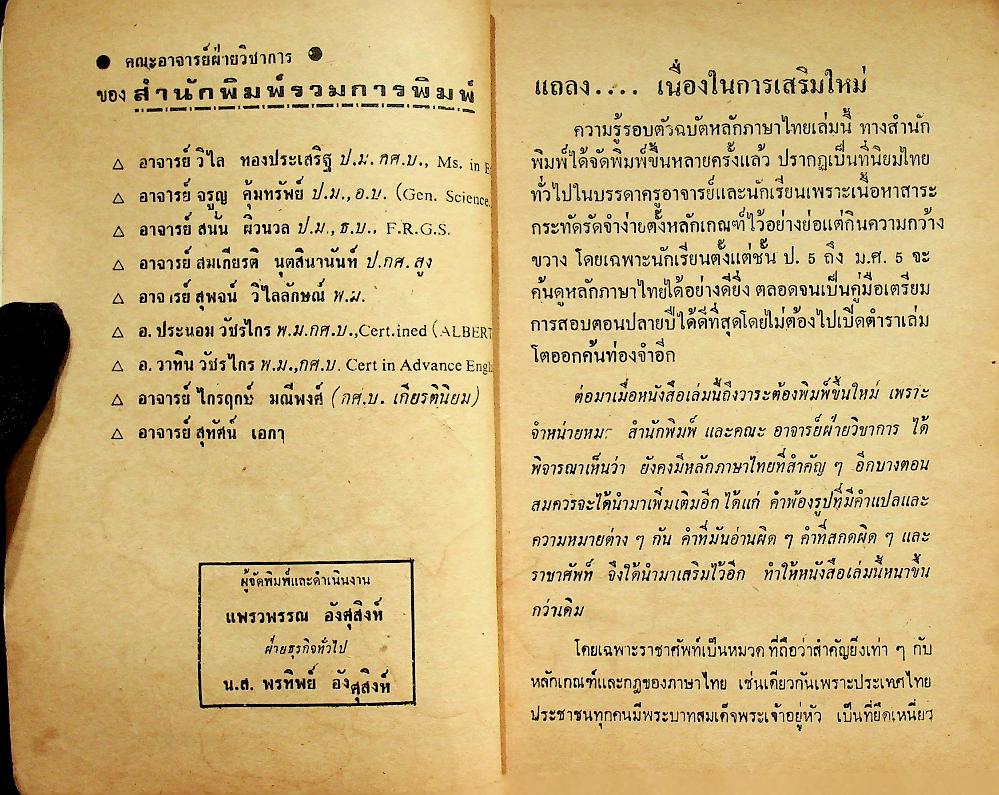 ● คณะอาจารย์ฝ่ายวิชาการ ●
ของ สำนักพิมพ์รวมการพิมพ์
△ อาจารย์ วิไล ทองประเสริฐ ป.ม. กศ.บ., Ms. in E
△ อาจารย์ จรูญ คุ้มทรัพย์ ป.ม., อ.บ. (Gen. Science,
△ อาจารย์ สนั่น ผิวนวล ป.ม., ธ.บ., F.R.G.S.
△ อาจารย์ สมเกียรติ นุตสินานันท์ ป.กศ. สูง
△ อาจารย์ สุพจน์ วิไลลักษณ์ พ.ม.
△ อ. ประนอม วัชรไกร พ.ม.กศ.บ.,Cert.ined (ALBERT
△ อ. วาทิน วัชรไกร พ.ม.,กศ.บ. Cert in Advance Engl
△ อาจารย์ ไกรฤกษ์ มณีพงศ์ (กศ.บ. เกียรตินิยม)
△ อาจารย์ สุทัศน์ เอกา
ผู้จัดพิมพ์และดำเนินงาน
แพรวพรรณ อังศุสิงห์
ฝ่ายธุรกิจทั่วไป
น.ส. พรทิพย์ อังศุสิงห์
แถลง.... เนื่องในการเสริมใหม่
ความรู้รอบตัวฉบัตหลักภาษาไทยเล่มนี้ ทางสำนัก
พิมพ์ได้จัดพิมพ์ขึ้นหลายครั้งแล้ว ปรากฏเป็นที่นิยมไทย
ทั่วไปในบรรดาครูอาจารย์และนักเรียนเพราะเนื้อหาสาระ
กระทัดรัดจำง่ายตั้งหลักเกณฑ์ไว้อย่างย่อแต่กินความกว้าง
ขวาง โดยเฉพาะนักเรียนตั้งแต่ชั้น ป. 5 ถึง ม.ศ. 5 จะ
ค้นดูหลักภาษาไทยได้อย่างดียิ่ง ตลอดจนเป็นคู่มือเตรียม
การสอบตอนปลายปีได้ดีที่สุดโดยไม่ต้องไปเปิดตำราเล่ม
โตออกค้นท่องจำอีก
ต่อมาเมื่อหนังสือเล่มนี้ถึงวาระต้องพิมพ์ขึ้นใหม่ เพราะ
จำหน่ายหมด สำนักพิมพ์ และคณะ อาจารย์ฝ่ายวิชาการ ได้
พิจารณาเห็นว่า ยังคงมีหลักภาษาไทยที่สำคัญ ๆ อีกบางตอน
สมควรจะได้นำมาเพิ่มเติมอีก ได้แก่ คำพ้องรูปที่มีคำแปลและ
ความหมายต่าง ๆ กัน คำที่มันอ่านผิด ๆ คำที่สกดผิด ๆ และ
ราชาศัพท์ จึงได้นำมาเสริมไว้อีก ทำให้หนังสือเล่มนี้หนาขึ้น
กว่าเดิม
โดยเฉพาะราชาศัพท์เป็นหมวด ที่ถือว่าสำคัญยิ่งเท่า ๆ กับ
หลักเกณฑ์และกฎของภาษาไทย เช่นเดียวกันเพราะประเทศไทย
ประชาชนทุกคนมีพระบาทสมเด็จพระเจ้าอยู่หัว เป็นที่ยึดเหนี่ยว